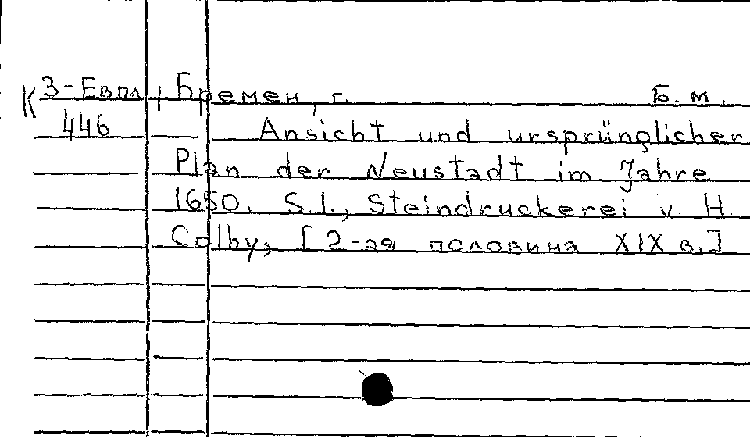 К 3-Евпл, Бремен, г. Б. м.
446 Ansicht und ursprünglicher
Plan der Neustadt im Jahre
1650. S.l., Steindruckerei v. H.
Colby, [2-ая половина XIX в.]